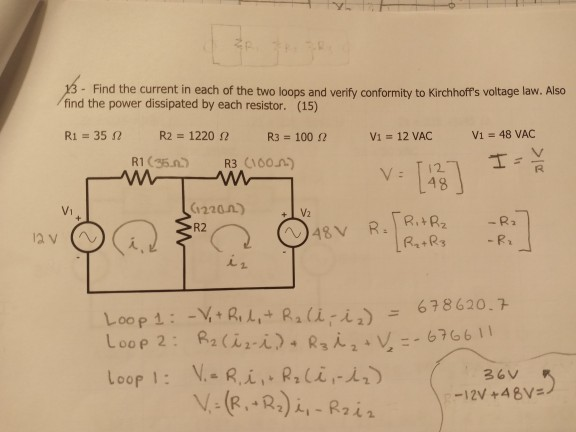 13 - Find the current in each of the two loops and verify conformity to Kirchhoff's voltage law. Also
find the power dissipated by each resistor. (15)
R1 = 35 Ω R2 = 1220 Ω R3 = 100 Ω V1 = 12 VAC V1 = 48 VAC
R1 (35Ω) R3 (100Ω)
V = [12 48] I = V/R
V1 + (1220Ω) R2 + V2
12V i1 i2 48V
- -
R = [R1+R2 -R2
R2+R3 -R2]
Loop 1: -V1 + R1i1 + R2(i1-i2) = 678620.7
Loop 2: R2(i2-i1) + R3i2 + V2 = -676611
Loop 1: V1 = R1i1 + R2(i1-i2)
V1 = (R1+R2)i1 - R2i2
36V
-12V+48V=